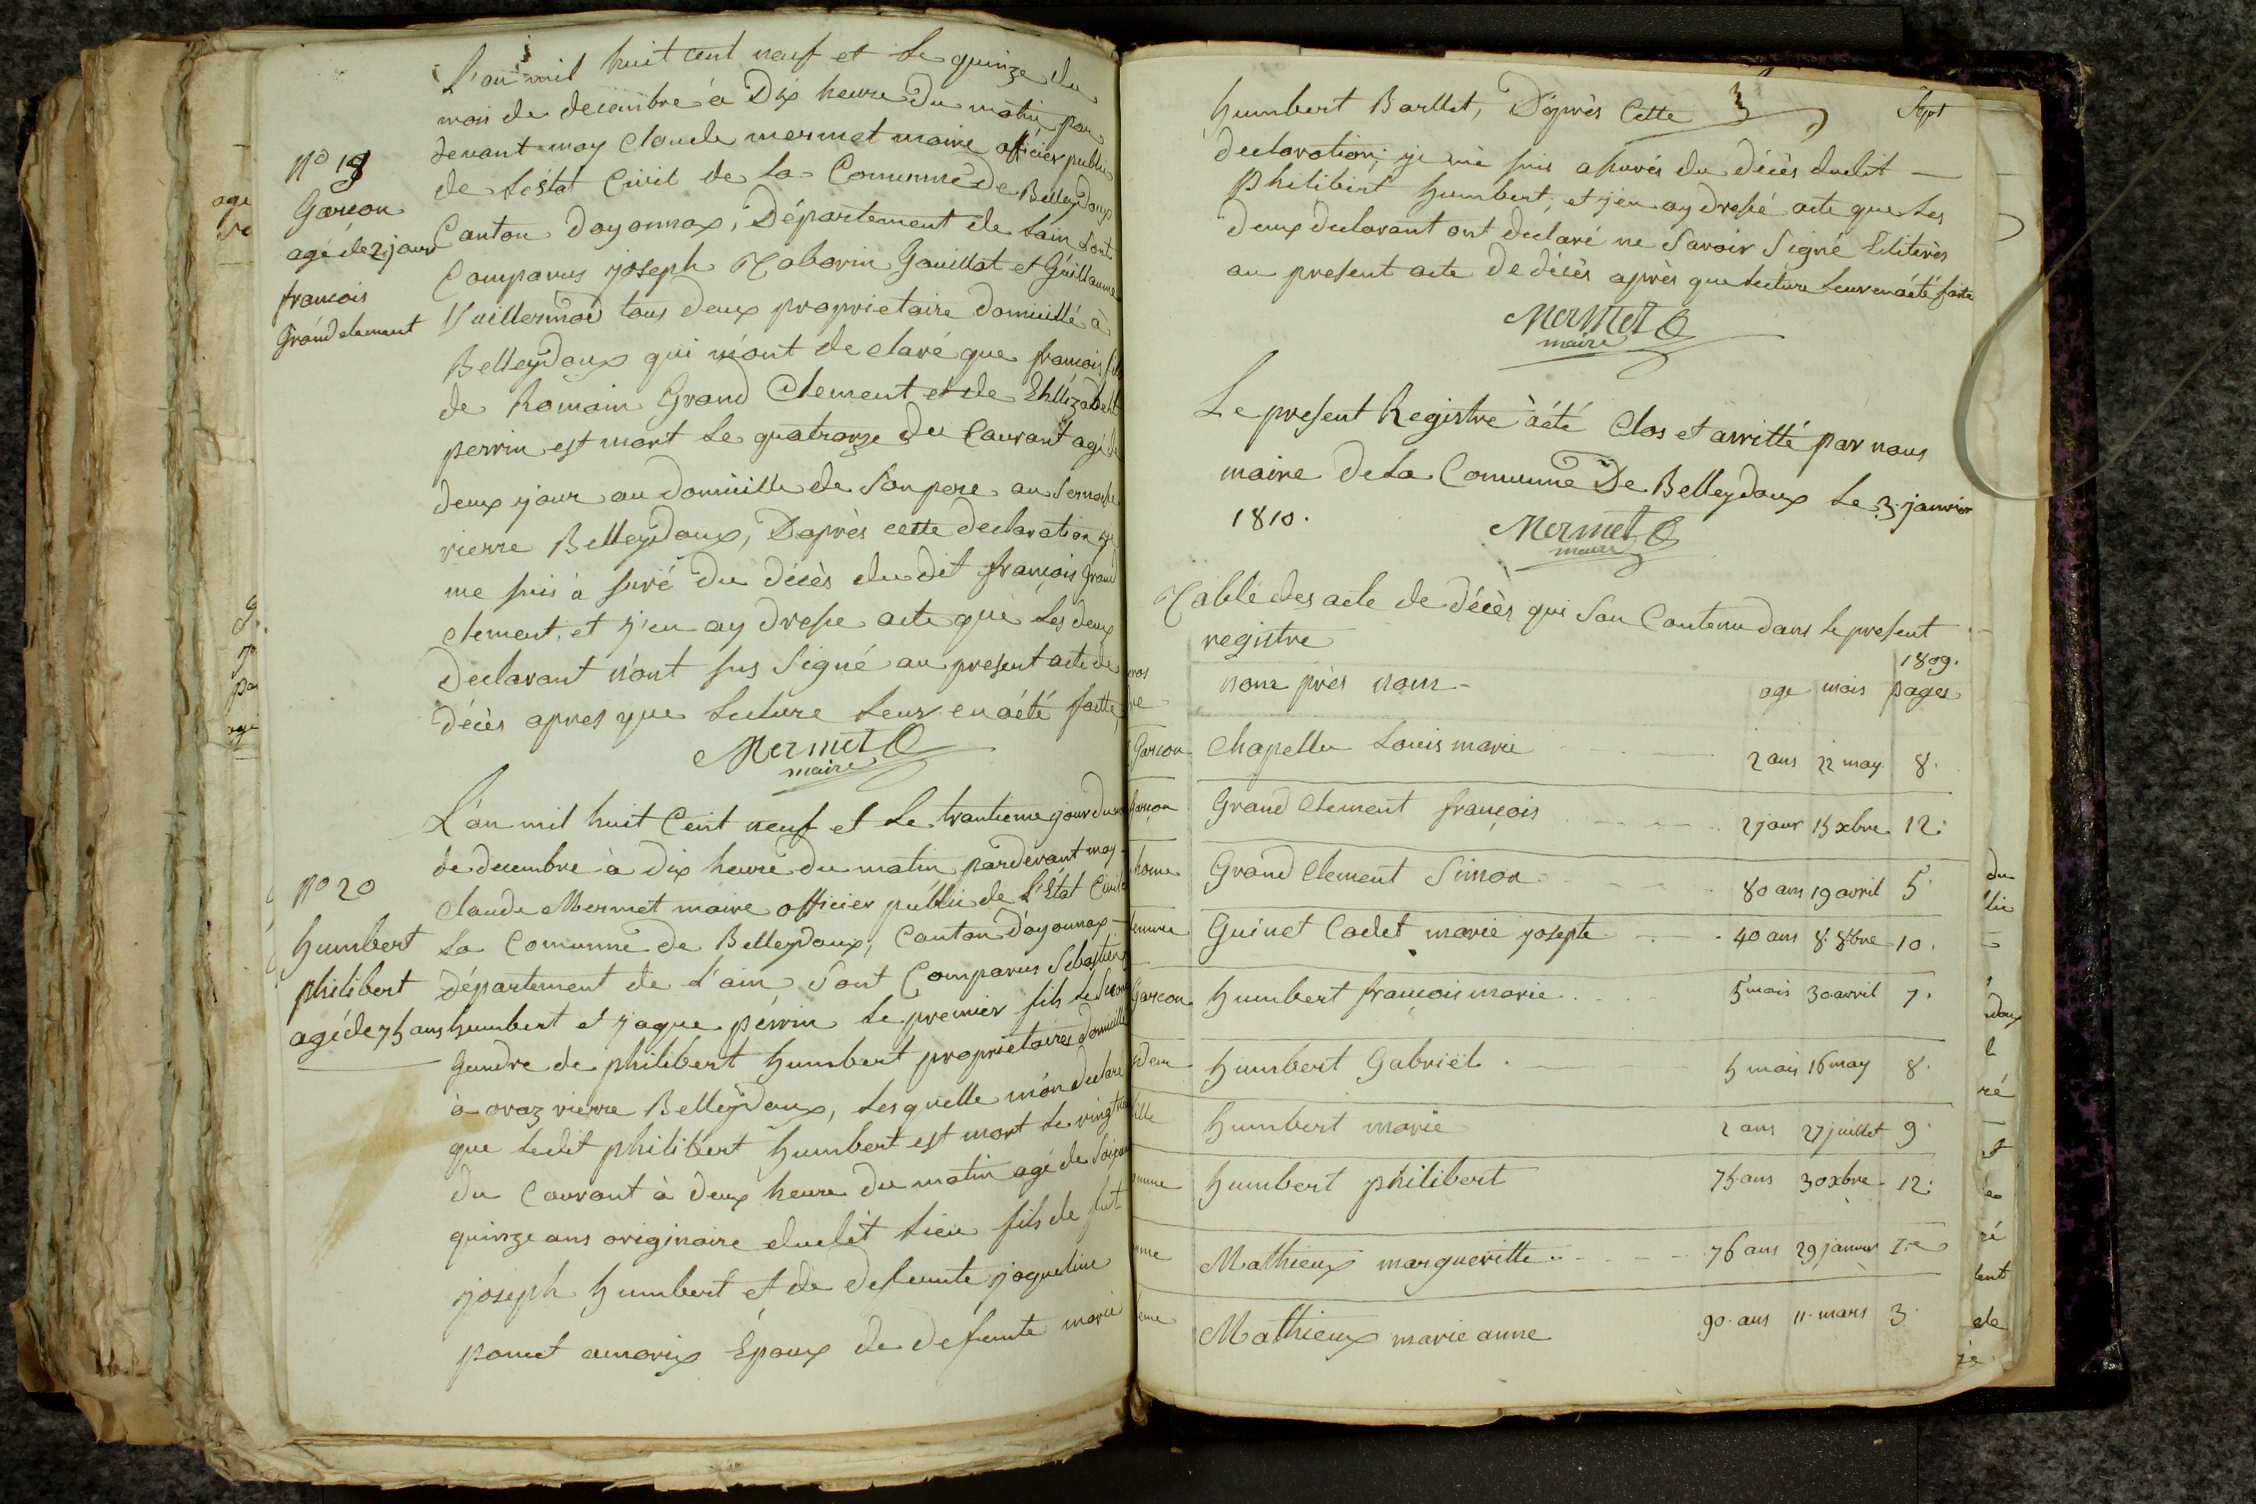 L'an mil huit cent neuf et le quinze du
mois de decembre à Dix heure du matin par
devant moy Claude mermet maire officier public
de Lestat Civil de la Commune de Belleydoux
Canton doyonnax, Département de Lain Sont
Comparus joseph Tabarin Gauillat et Guillaume
Vuillermoz tous deux proprietaire domicillé à
Belleydoux qui m'ont declaré que francois fils
de Romain Grand Clement et de Ehllizabeth
perrin est mort Le quatorze du Courant agé de
deux jour au domicille de Son pere au
rierre Belleydoux, Daprès cette declaration je
me suis à suré du décès du dit françois grand
clement, et j'en ay drese acte que les deux
declarant n'ont sus Signé au present acte de
décès apres que lecture leur en a été faitte,
Mermet
maire
N° 19
Garcon
agé de 2 jour
francois
Grand clement
L'an mil huit Cent neuf et le trantieme jour du mois
de decembre à dix heure du matin pardevant moy
Claude Mermet maire officier public de l'Etat Civil de
la Comunne de Belleydoux, Canton d'oyonnax
département de l'ain Sont Comparus Sebastien
humbert et jaque perrin le premier fils le Second
gendre de philibert humbert proprietaires domicillé
à oraz rierre Belleydoux, lesquelle m'on declare
que ledit philibert humbert est mort le vingt neuf
du Courant à deux heure du matin agé de Soixante
quinze ans originaire dudit lieu fils de fut
joseph humbert et de defunte jaqueline
poncet amorix Epoux de defunte marie
N° 20
humbert
philibert
agé de 75 ans
humbert Barllet, D'après Cette
declaration; je me suis asurés du décès dudit
Philibert humbert, et j'en ay dresé acte que les
deux declarant ont declaré ne Savoir Signé Eliterès
au present acte de décès après que lecture leur en a été faite
Mermet
maire
Le present Registre à été Clos et arritté par nous
maire de la Comunne De Belleydoux le 3 janvier
1810.
Mermet
maire
Table des acte de décès qui Son Contenu dans le present
registre
1809.
nom près nom - age mois pages
Garcon Chapellu Louis marie 2 ans 22 may 8.
Garçon Grand Clement françois 2 jour 15 xbre 12.
home Grand Clement Simon 80 ans 19 avril 5.
femme Guinet Cadet marie josepte 40 ans 8. 8bre 10.
Garcon humbert françois marie 5 mois 30 avril 7.
humbert Gabriel 5 mois 16 may 8.
fille humbert marie 2 ans 27 juillet 9.
humbert philibert 75 ans 30 xbre 12.
Mathieux margueritte 76 ans 29 janvier 1.e
Mathieux marie anne 90 ans 11 mars 3